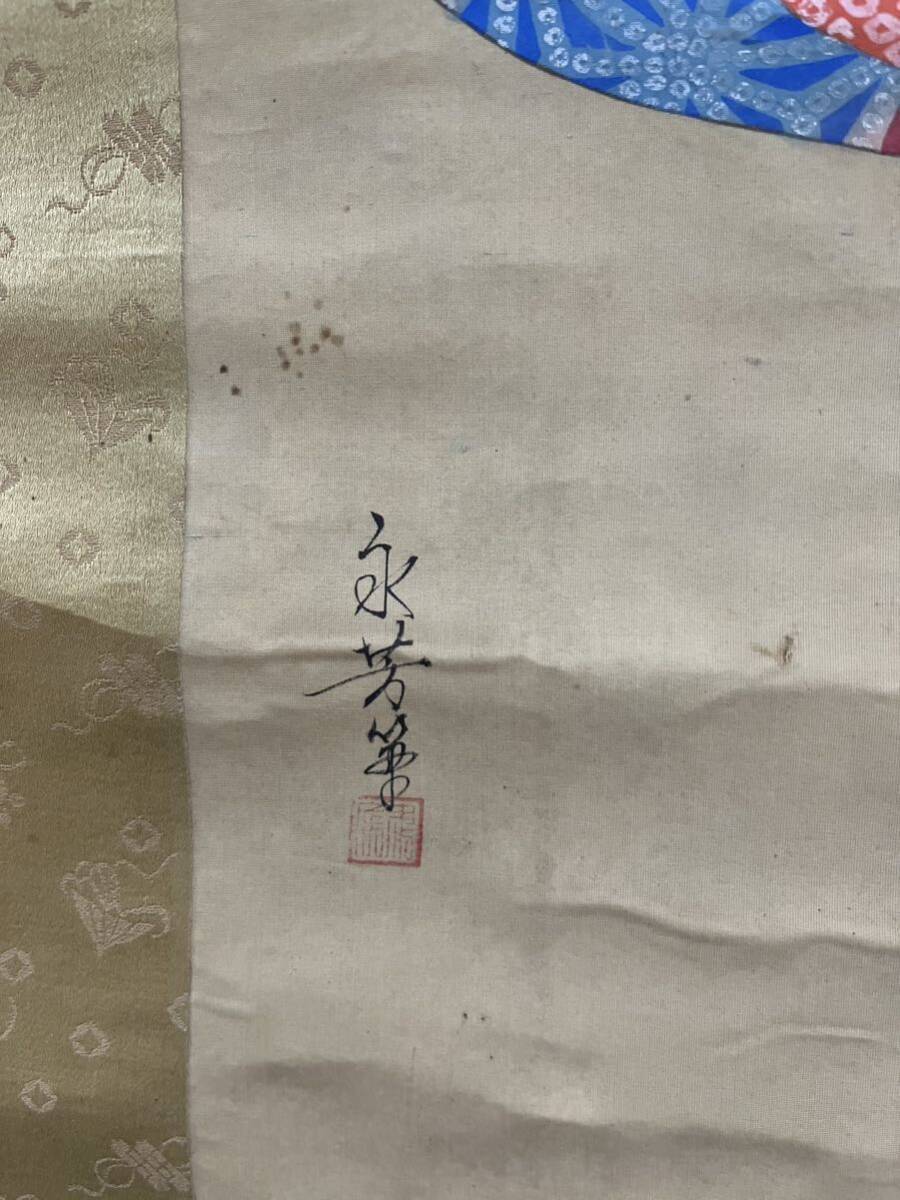 永芳筆